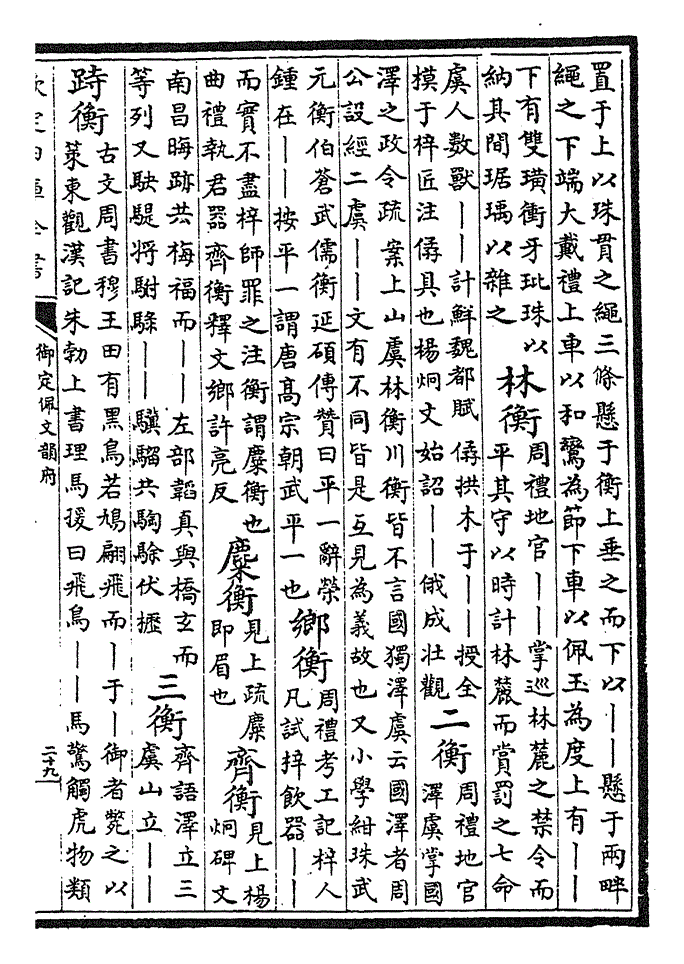 置于上以珠貫之繩三條懸于衡上垂之而下以——懸于兩畔
繩之下端大戴禮上車以和鸞為節下車以佩玉為度上有——
下有雙璜衝牙玭珠以
納其間琚瑀以雜之
林衡
周禮地官——掌巡林麓之禁令而
平其守以時計林麓而賞罰之七命
虞人數獸——計鮮魏都賦僝拱木于——授全
摸于梓匠注僝具也楊炯文始詔——俄成壯觀
二衡
周禮地官
澤虞掌國
澤之政令疏案上山虞林衡川衡皆不言國獨澤虞云國澤者周
公設經二虞——文有不同皆是互見為義故也又小學紺珠武
元衡伯蒼武儒衡延碩傳贊曰平一辭榮
鍾在——按平一謂唐高宗朝武平一也
鄉衡
周禮考工記梓人
凡試梓飲器——
而實不盡梓師罪之注衡謂麋衡也
曲禮執君器齊衡釋文鄉許亮反
麋衡
見上疏麋
即眉也
齊衡
見上楊
炯碑文
南昌晦跡共梅福而——左部韜真與橋玄而
等列又駃騠將駙騄——驥騮共騊駼伏櫪
三衡
齊語澤立三
虞山立——
跱衡
古文周書穆王田有黑鳥若鳩翩飛而—于—御者斃之以
策東觀漢記朱勃上書理馬援曰飛鳥——馬驚觸虎物類
欽定四庫全書
御定佩文韻府
二十九